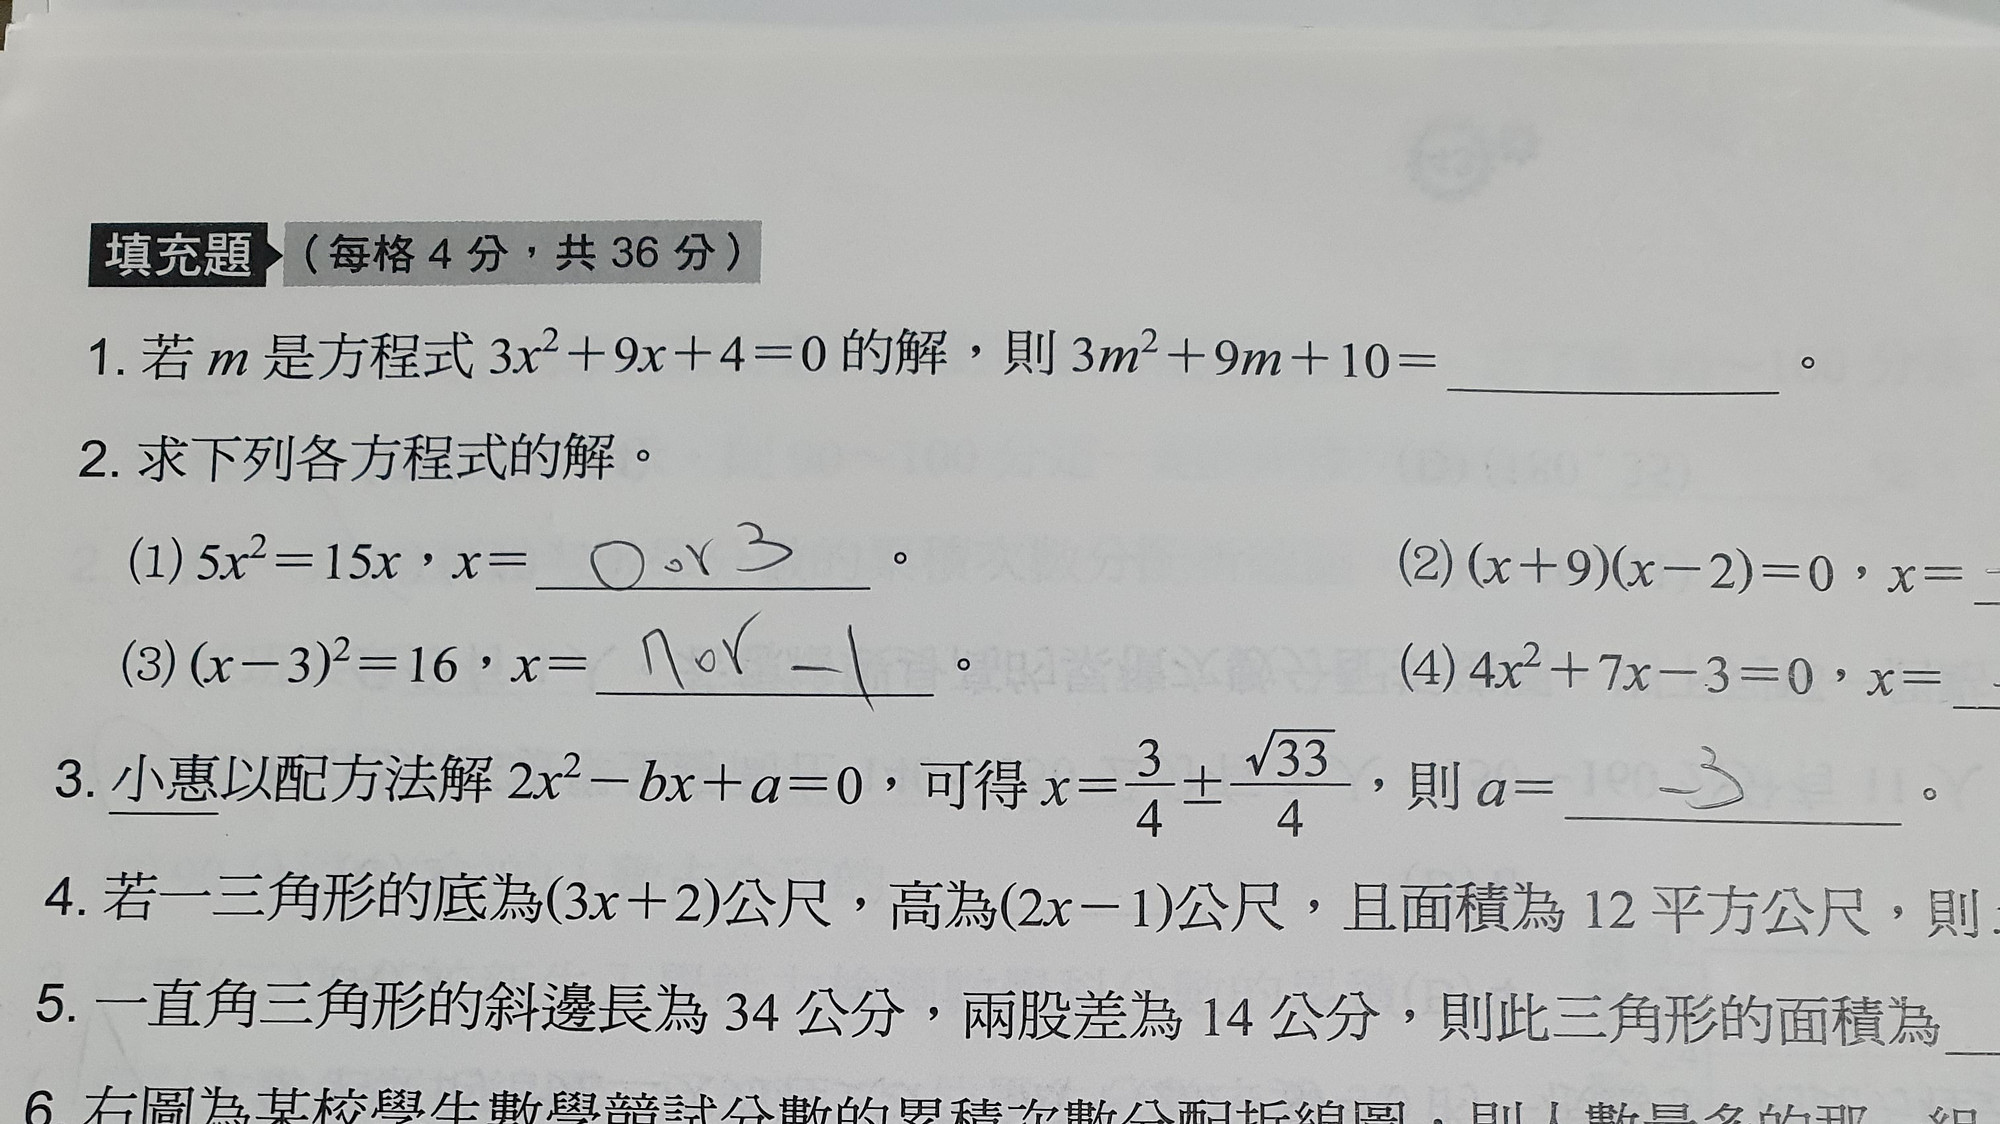 填充題（每格 4 分，共 36 分）
1. 若 m 是方程式 3x²＋9x＋4＝0 的解，則 3m²＋9m＋10＝＿＿＿＿＿＿。
2. 求下列各方程式的解。
(1) 5x²＝15x，x＝ 0 or 3 。 (2) (x＋9)(x－2)＝0，x＝
(3) (x－3)²＝16，x＝ 7 or －1 。 (4) 4x²＋7x－3＝0，x＝
3. 小惠以配方法解 2x²－bx＋a＝0，可得 x＝3/4±√33/4，則 a＝ －3 。
4. 若一三角形的底為(3x＋2)公尺，高為(2x－1)公尺，且面積為 12 平方公尺，則
5. 一直角三角形的斜邊長為 34 公分，兩股差為 14 公分，則此三角形的面積為
6. 右圖為某校學生數學競試分數的累積次數分配折線圖，則人數最多的那一組